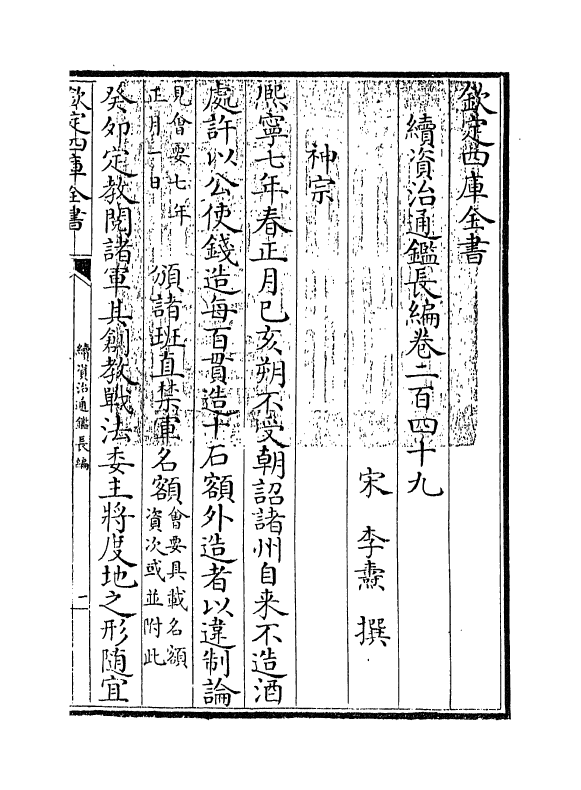 欽定四庫全書
續資治通鑑長編卷二百四十九
宋 李燾 撰
神宗
熙寧七年春正月己亥朔不受朝詔諸州自来不造酒
處許以公使錢造每百貫造十石額外造者以違制論
見會要七年
正月一日
頒諸班直禁軍名額
會要具載名額
資次或並附此
癸卯定教閱諸軍其創教戰法委主將度地之形随宜
欽定四庫全書
續資治通鑑長編
一